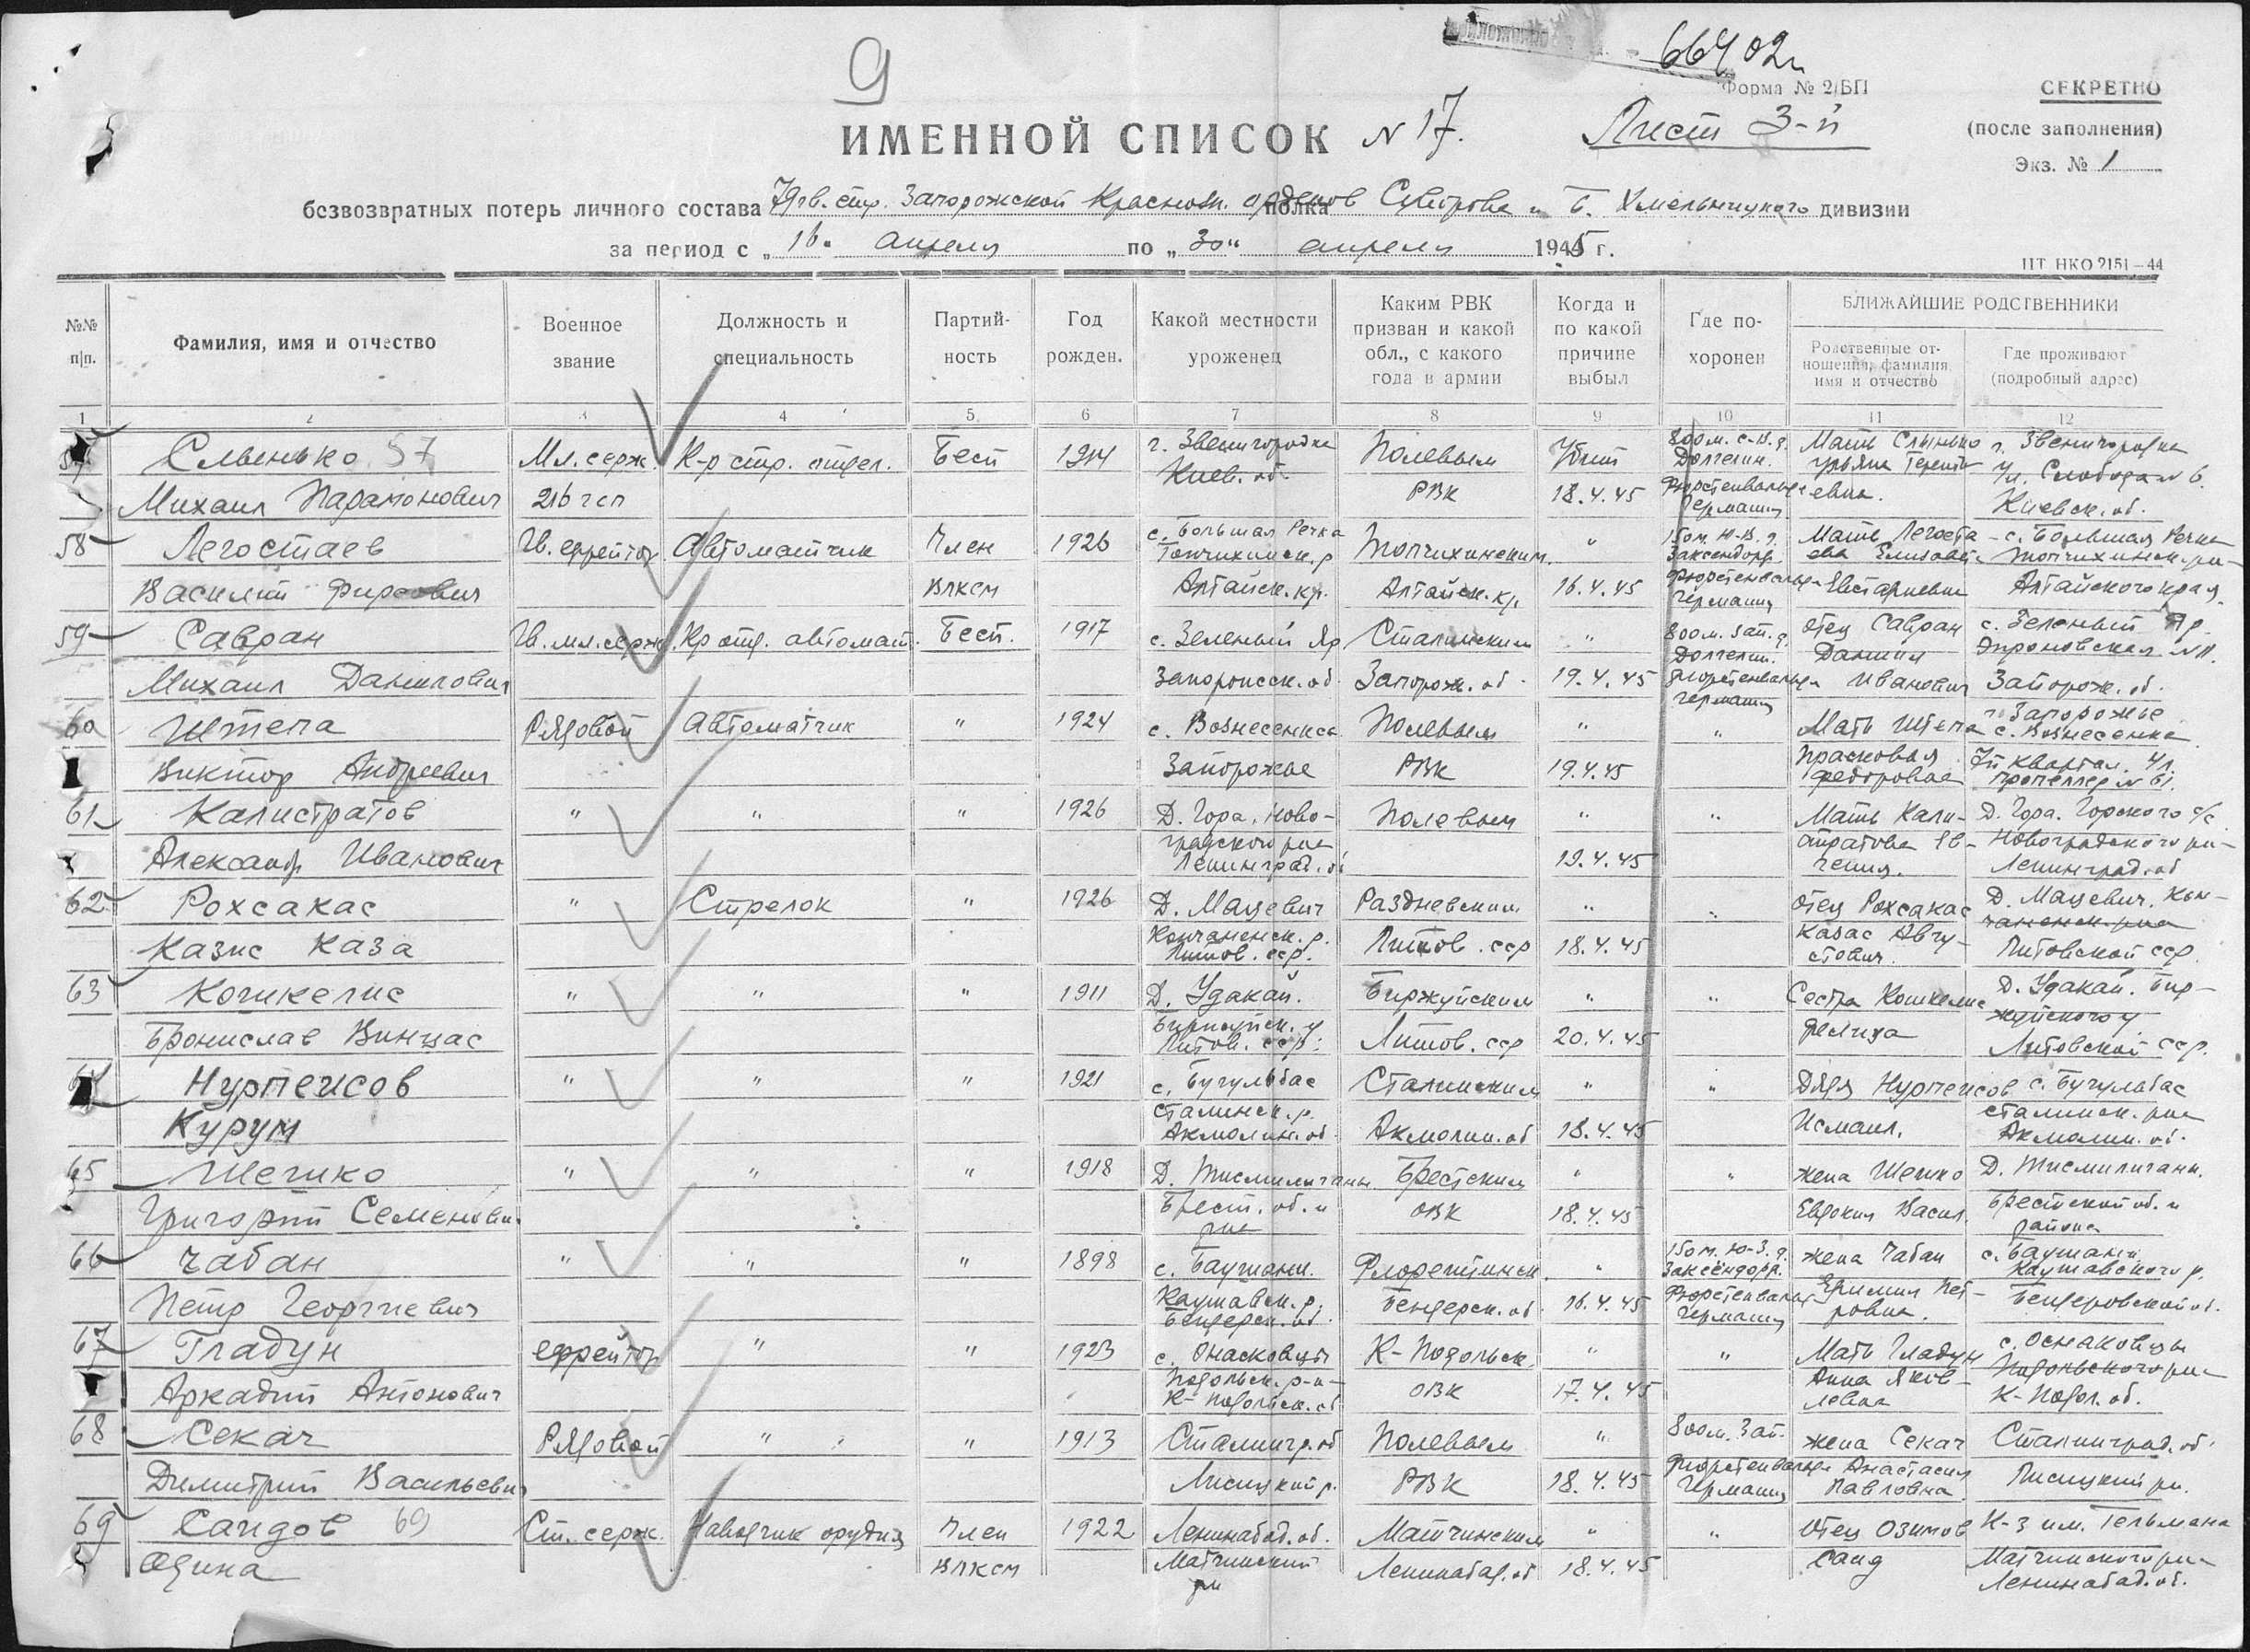 9
66402
Форма № 2/БП
СЕКРЕТНО
ИМЕННОЙ СПИСОК N 17.
Лист 3-й
(после заполнения)
Экз. № 1
безвозвратных потерь личного состава 79 гв. стр. Запорожской Краснозн. орденов Суворова и Б. Хмельницкого дивизии
полка
за период с „16“ апреля по „30“ апреля 1945 г.
ЦТ НКО 2151—44
№№ п/п.
Фамилия, имя и отчество
Военное звание
Должность и специальность
Партий-ность
Год рожден.
Какой местности уроженец
Каким РВК призван и какой обл., с какого года в армии
Когда и по какой причине выбыл
Где по-хоронен
БЛИЖАЙШИЕ РОДСТВЕННИКИ
Родственные от-ношения, фамилия, имя и отчество
Где проживают (подробный адрес)
1 2 3 4 5 6 7 8 9 10 11 12
57 Слынько 57 Мл. серж. К-р стр. отдел. Бесп 1914 г. Звенигородка Полевым Убит 800 м. с-в. д. Мать Слынько г. Звенигородка
Киев. об. Долгелин. Ульяна Теренть- ул. Слобода N 6.
Михаил Парамонович 216 гсп РВК 18.4.45 Фюрстенвальде Германия евна. Киевск. об.
58 Легостаев Гв. ефрейтор Автоматчик Член 1926 с. Большая Речка Топчихинск. р Топчихинским " 150 м. ю-в. д. Заксендорф. Мать Легоста- ева Елизавета с. Большая Речка Топчихинск. р-на
Василий Фирсович ВЛКСМ Алтайск. кр. Алтайск. кр. 16.4.45 Фюрстенвальде Германия Евстафиевна Алтайского края
59 Савран Гв. мл. серж. К-р отд. автомат. Бесп. 1917 с. Зеленый Яр Сталинским " 800 м. зап. д. Долгелин. Отец Савран Даниил с. Зеленый Яр
Михаил Данилович Запорожск. об. Запорож. об. 19.4.45 Фюрстенвальде Германия Иванович Запорож. об.
60 Штепа Рядовой Автоматчик " 1924 с. Вознесенка Полевым " " Мать Штепа г. Запорожье с. Вознесенка
Виктор Андреевич Запорожье РВК 19.4.45 Прасковья Федоровна 7й квартал. ул. Пропеллер N 61.
61 Калистратов " " " 1926 Д. Гора. Ново- Полевым " " Мать Кали- Д. Гора. Горского с/с
Александр Иванович градского р-на Ленинград. об 19.4.45 стратова Ев- гения. Новоградского р-на Ленинград. об
62 Рохсакас " Стрелок " 1926 Д. Мацевич Раздневским " " Отец Рохсакас Д. Мацевич. Кон-
Казис Каза Кончаненск. р. Литов. сср. Литов. сср 18.4.45 Казас Авгу- стович. чаненск. р-на Литовской сср.
63 Кошкелис " " " 1911 Д. Удакай. Биржуйским " " Сестра Кошкелис Д. Удакай. Бир-
Бронислав Винцас Биржуйск. у Литов. сср. Литов. сср 20.4.45 Фелиха жуйского у. Литовской сср.
64 Нурпеисов " " " 1921 с. Бугульбас Сталинским " " Дядя Нурпеисов с. Бугульбас
Курум Сталинск. р. Акмолин. об. Акмолин. об 18.4.45 Исмаил. Сталинск. р-на Акмолин. об.
65 Шечико " " " 1918 Д. Тисмиличаны Брестским " " жена Шечико Д. Тисмиличаны.
Григорий Семенович Брест. об. и р-на ОВК 18.4.45 Евдокия Васил. Брестской об. и района
66 Чабан " " " 1898 с. Баушаны. Флорештинск. " 150 м. ю-з. д. Заксендорф. жена Чабан с. Баушаны Каушавского р.
Петр Георгиевич Каушавск. р. Бендерск. об. Бендерск. об. 16.4.45 Фюрстенвальде Германия Ефимия Пет- ровна. Бендеровской об.
67 Гладун ефрейтор " " 1923 с. Онаcковцы К-Подольск. " " Мать Гладун с. Оснаковцы
Аркадий Антонович Подольск. р-н- К-Подольск. об ОВК 17.4.45 Анна Яков- левна Подольского р-на К-Подол. об.
68 Секач Рядовой " " 1913 Сталингр. об Полевым " 800 м. Зап. жена Секач Сталинград. об.
Димитрий Васильевич Лисицкий р. РВК 18.4.45 Фюрстенвальде Германия Анастасия Павловна Лисицкий р-н.
69 Саидов 69 Ст. серж. Наводчик орудия Член 1922 Ленинабад. об. Матчинским " " Отец Озимов К-з им. Тельмана
Одина ВЛКСМ Матчинский р-н Ленинабад. об 18.4.45 Саид Матчинского р-на Ленинабад. об.